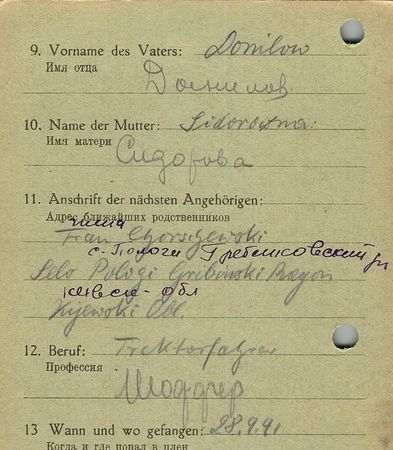 9. Vorname des Vaters: Donilow
Имя отца
10. Name der Mutter: Sidorowna
Имя матери
Сидорова
11. Anschrift der nächsten Angehörigen:
Адрес ближайших родственников
Frau
с.
Selo Pologi Gribinski Rayon
обл
Kyewski Obl.
12. Beruf: Trektorfahrer
Профессия
Шоффер
13 Wann und wo gefangen: 28.9.41
Когда и где попал в плен